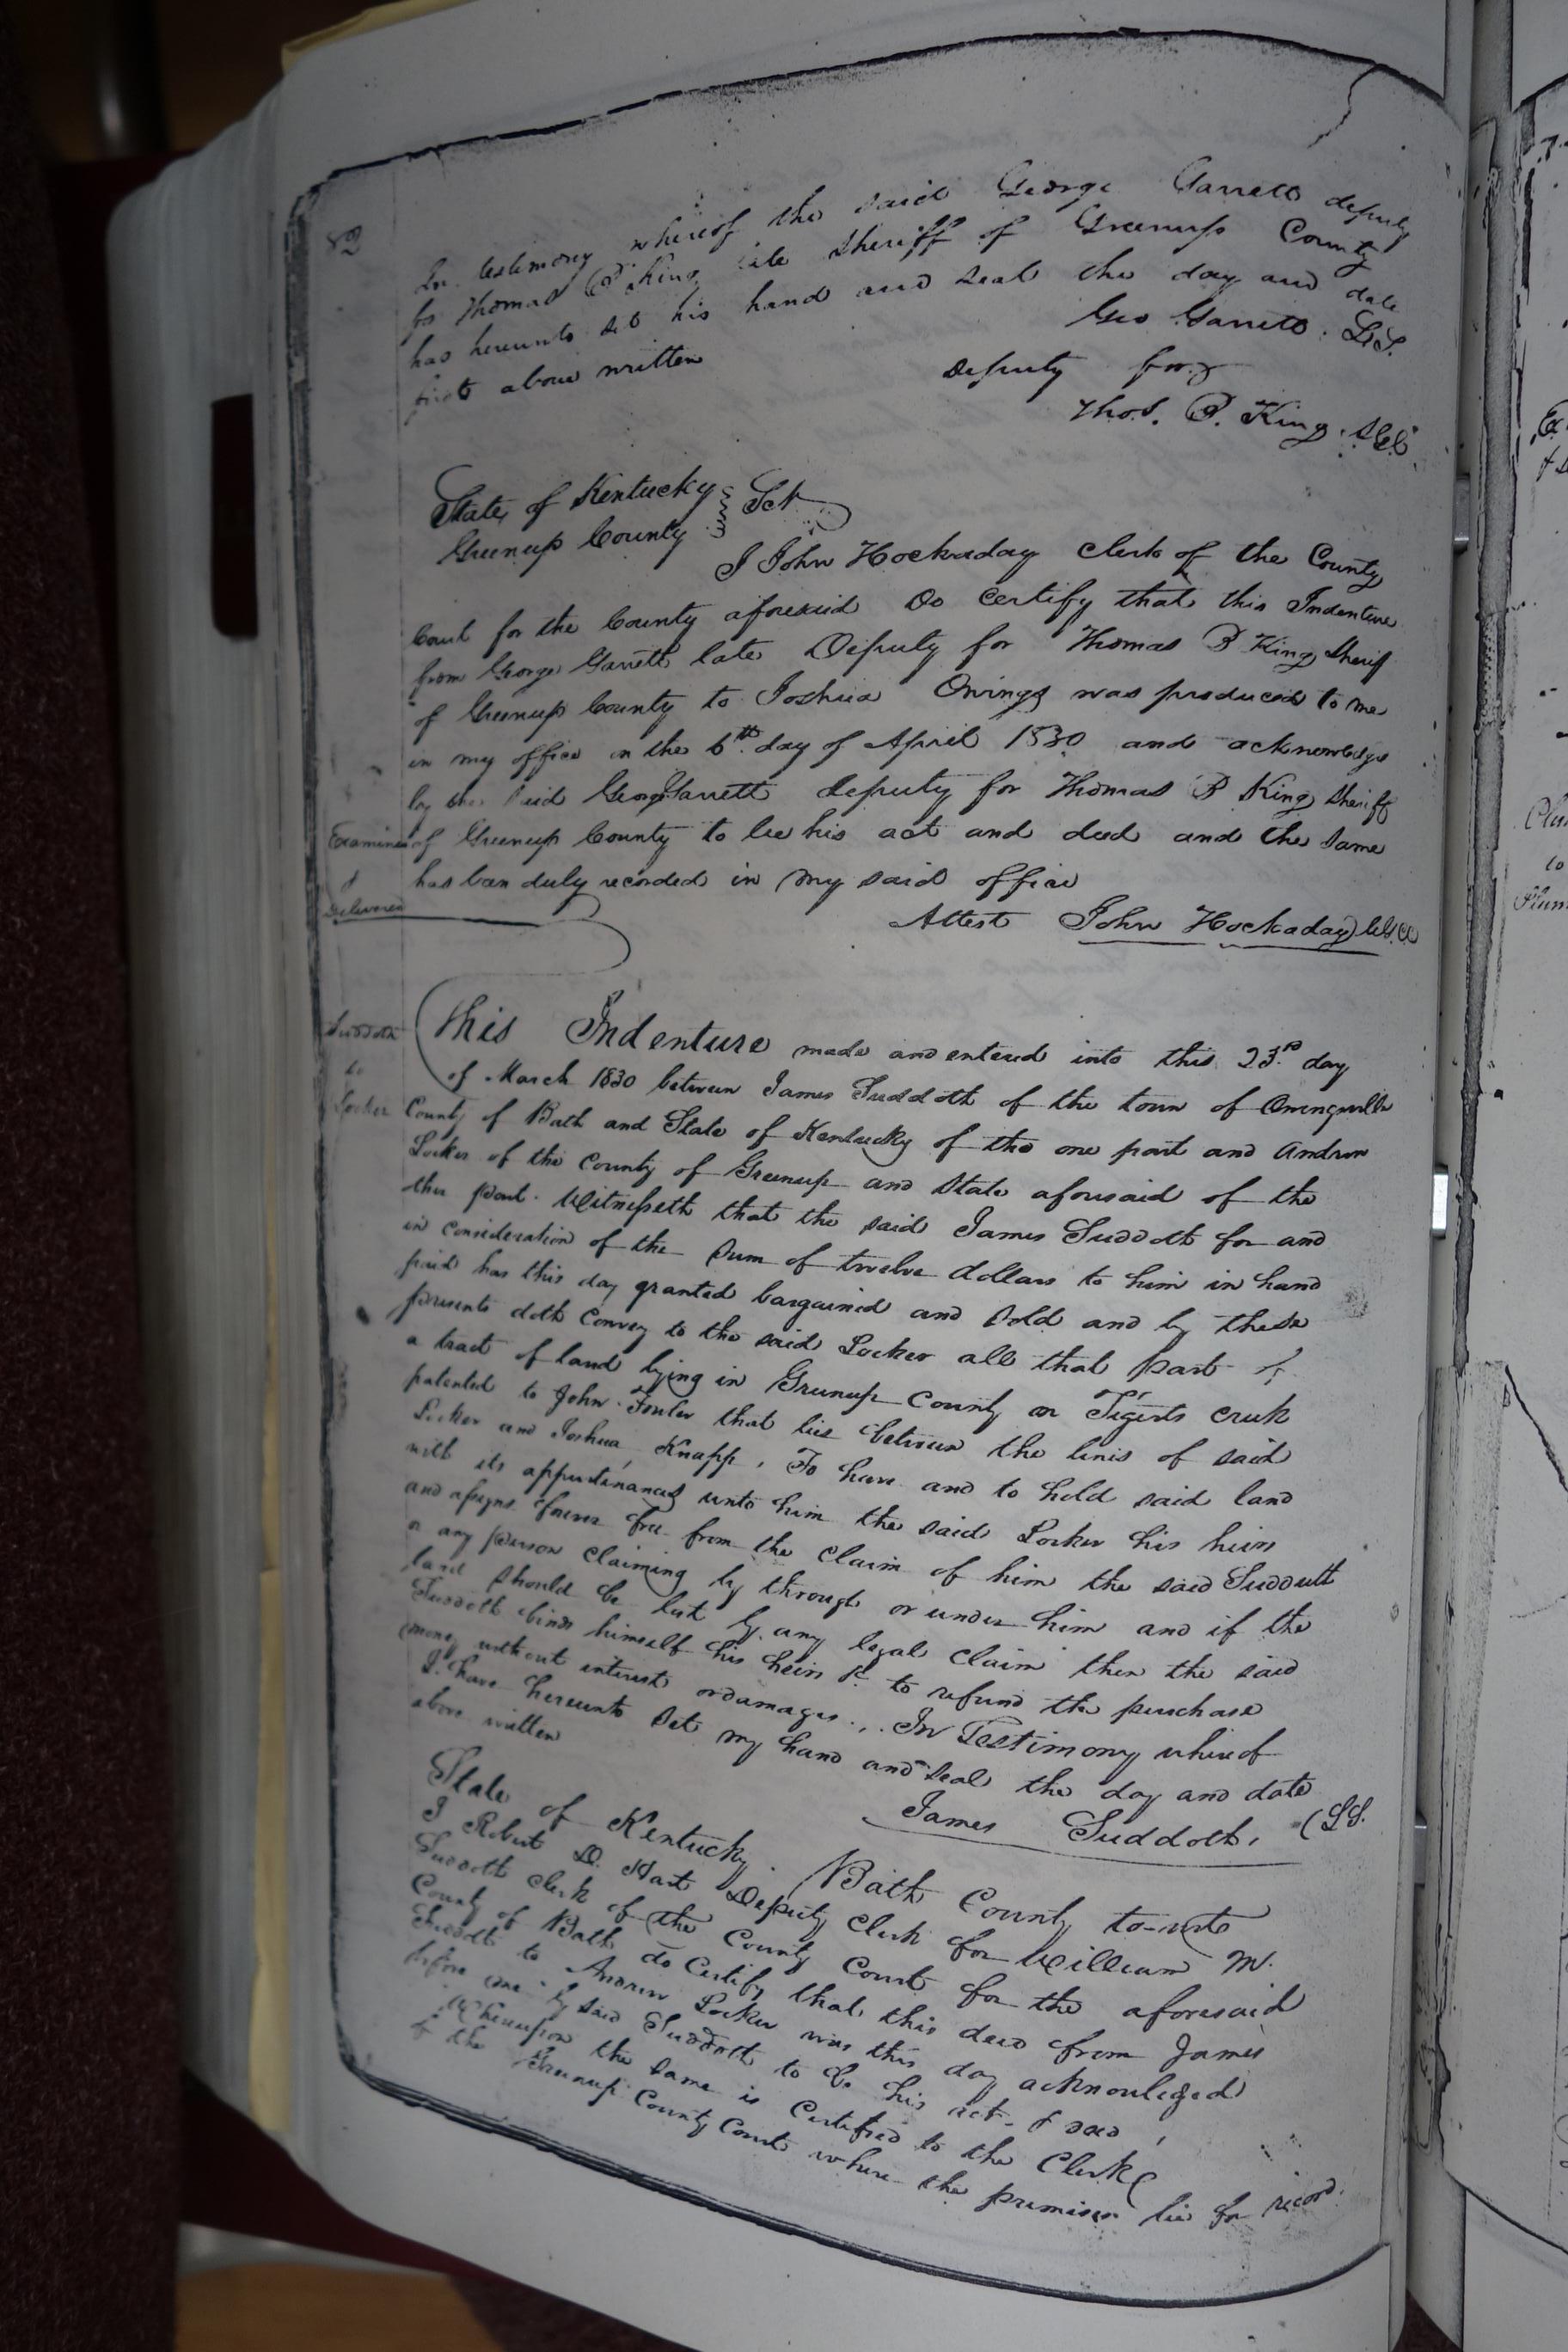 82
In testimony whereof the said George Garrett deputy
for Thomas B King late Sheriff of Greenup County
has hereunto set his hand and seal the day and date
first above written
Geo Garrett L.S.
Deputy for
Thos. B. King S.G.C.
State of Kentucky
Greenup County Sct
I John Hockaday Clerk of the County
Court for the County aforesaid Do Certify that this Indenture
from George Garrett late Deputy for Thomas B King Sheriff
of Greenup County to Joshua Owings was produced to me
in my office on the 6th day of April 1830 and acknowledge
by the said George Garrett deputy for Thomas B King Sheriff
of Greenup County to be his act and deed and the same
has been duly recorded in my said office
Examined
&
Delivered
Attest John Hockaday
Suddoth
to
Locker
This Indenture made and entered into this 23rd day
of March 1830 between James Suddoth of the town of Owingsville
County of Bath and State of Kentucky of the one part and Andrew
Locker of the County of Greenup and State aforesaid of the
other part. Witnesseth that the said James Suddoth for and
in consideration of the Sum of twelve dollars to him in hand
paid has this day granted bargained and sold and by these
presents doth Convey to the said Locker all that part of
a tract of land lying in Greenup County on Tigerts creek
patented to John Fowler that lies between the lines of said
Locker and Joshua Knapp, To have and to hold said land
with its appurtenances unto him the said Locker his heirs
and assigns forever free from the Claim of him the said Suddoth
or any person claiming by through or under him and if the
land should be lost by any legal claim then the said
Suddoth binds himself his heirs &c to refund the purchase
money without interest or damages... In Testimony whereof
I have hereunto Set my hand and Seal the day and date
above written
James Suddoth. (LS.
State of Kentucky. Bath County to-wit
I Robert D. Hart Deputy Clerk for William M.
Suddoth Clerk of the County Court for the aforesaid
County of Bath do Certify that this deed from James
Suddoth to Andrew Locker was this day acknowleged
before me by said Suddoth to be his act & deed,
Whereupon the same is Certified to the Clerk
of the Greenup County Court where the premises lie for record.